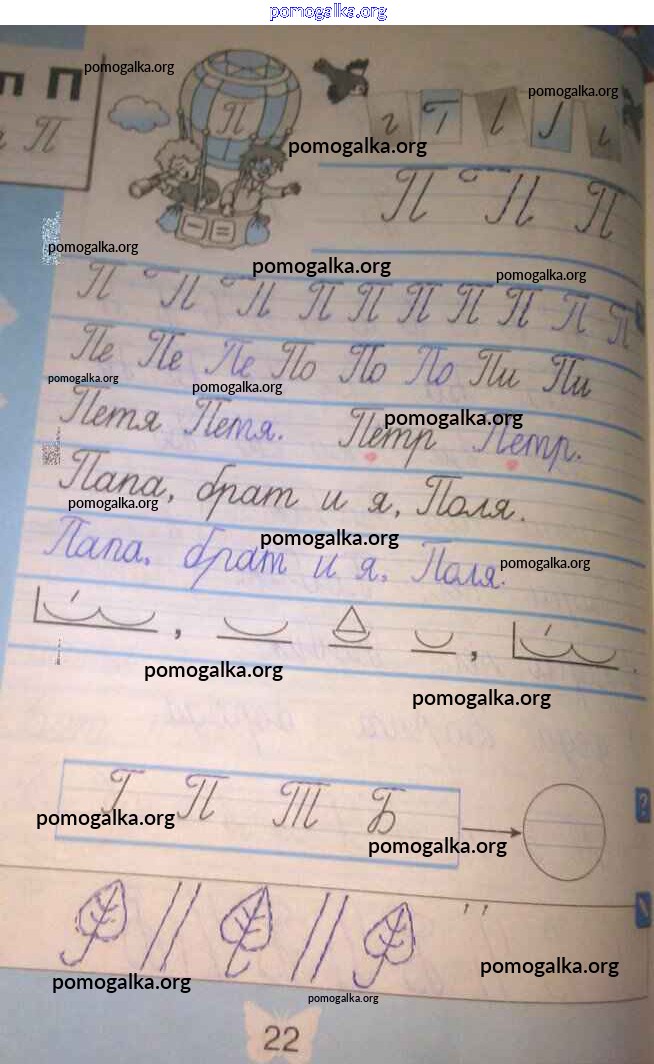 pomogalka.org
п П
pomogalka.org
pomogalka.org
П
П
г Г
pomogalka.org
П П П
pomogalka.org
pomogalka.org
pomogalka.org
П П П П П П П П П П
Пе Пе Пе По По По Пи Пи
pomogalka.org
pomogalka.org
pomogalka.org
Петя Петя. Петр Петр.
Папа, брат и я, Поля.
pomogalka.org
pomogalka.org
Папа, брат и я, Поля.
pomogalka.org
pomogalka.org
pomogalka.org
Г П Т Б
?
pomogalka.org
pomogalka.org
pomogalka.org
pomogalka.org
pomogalka.org
22